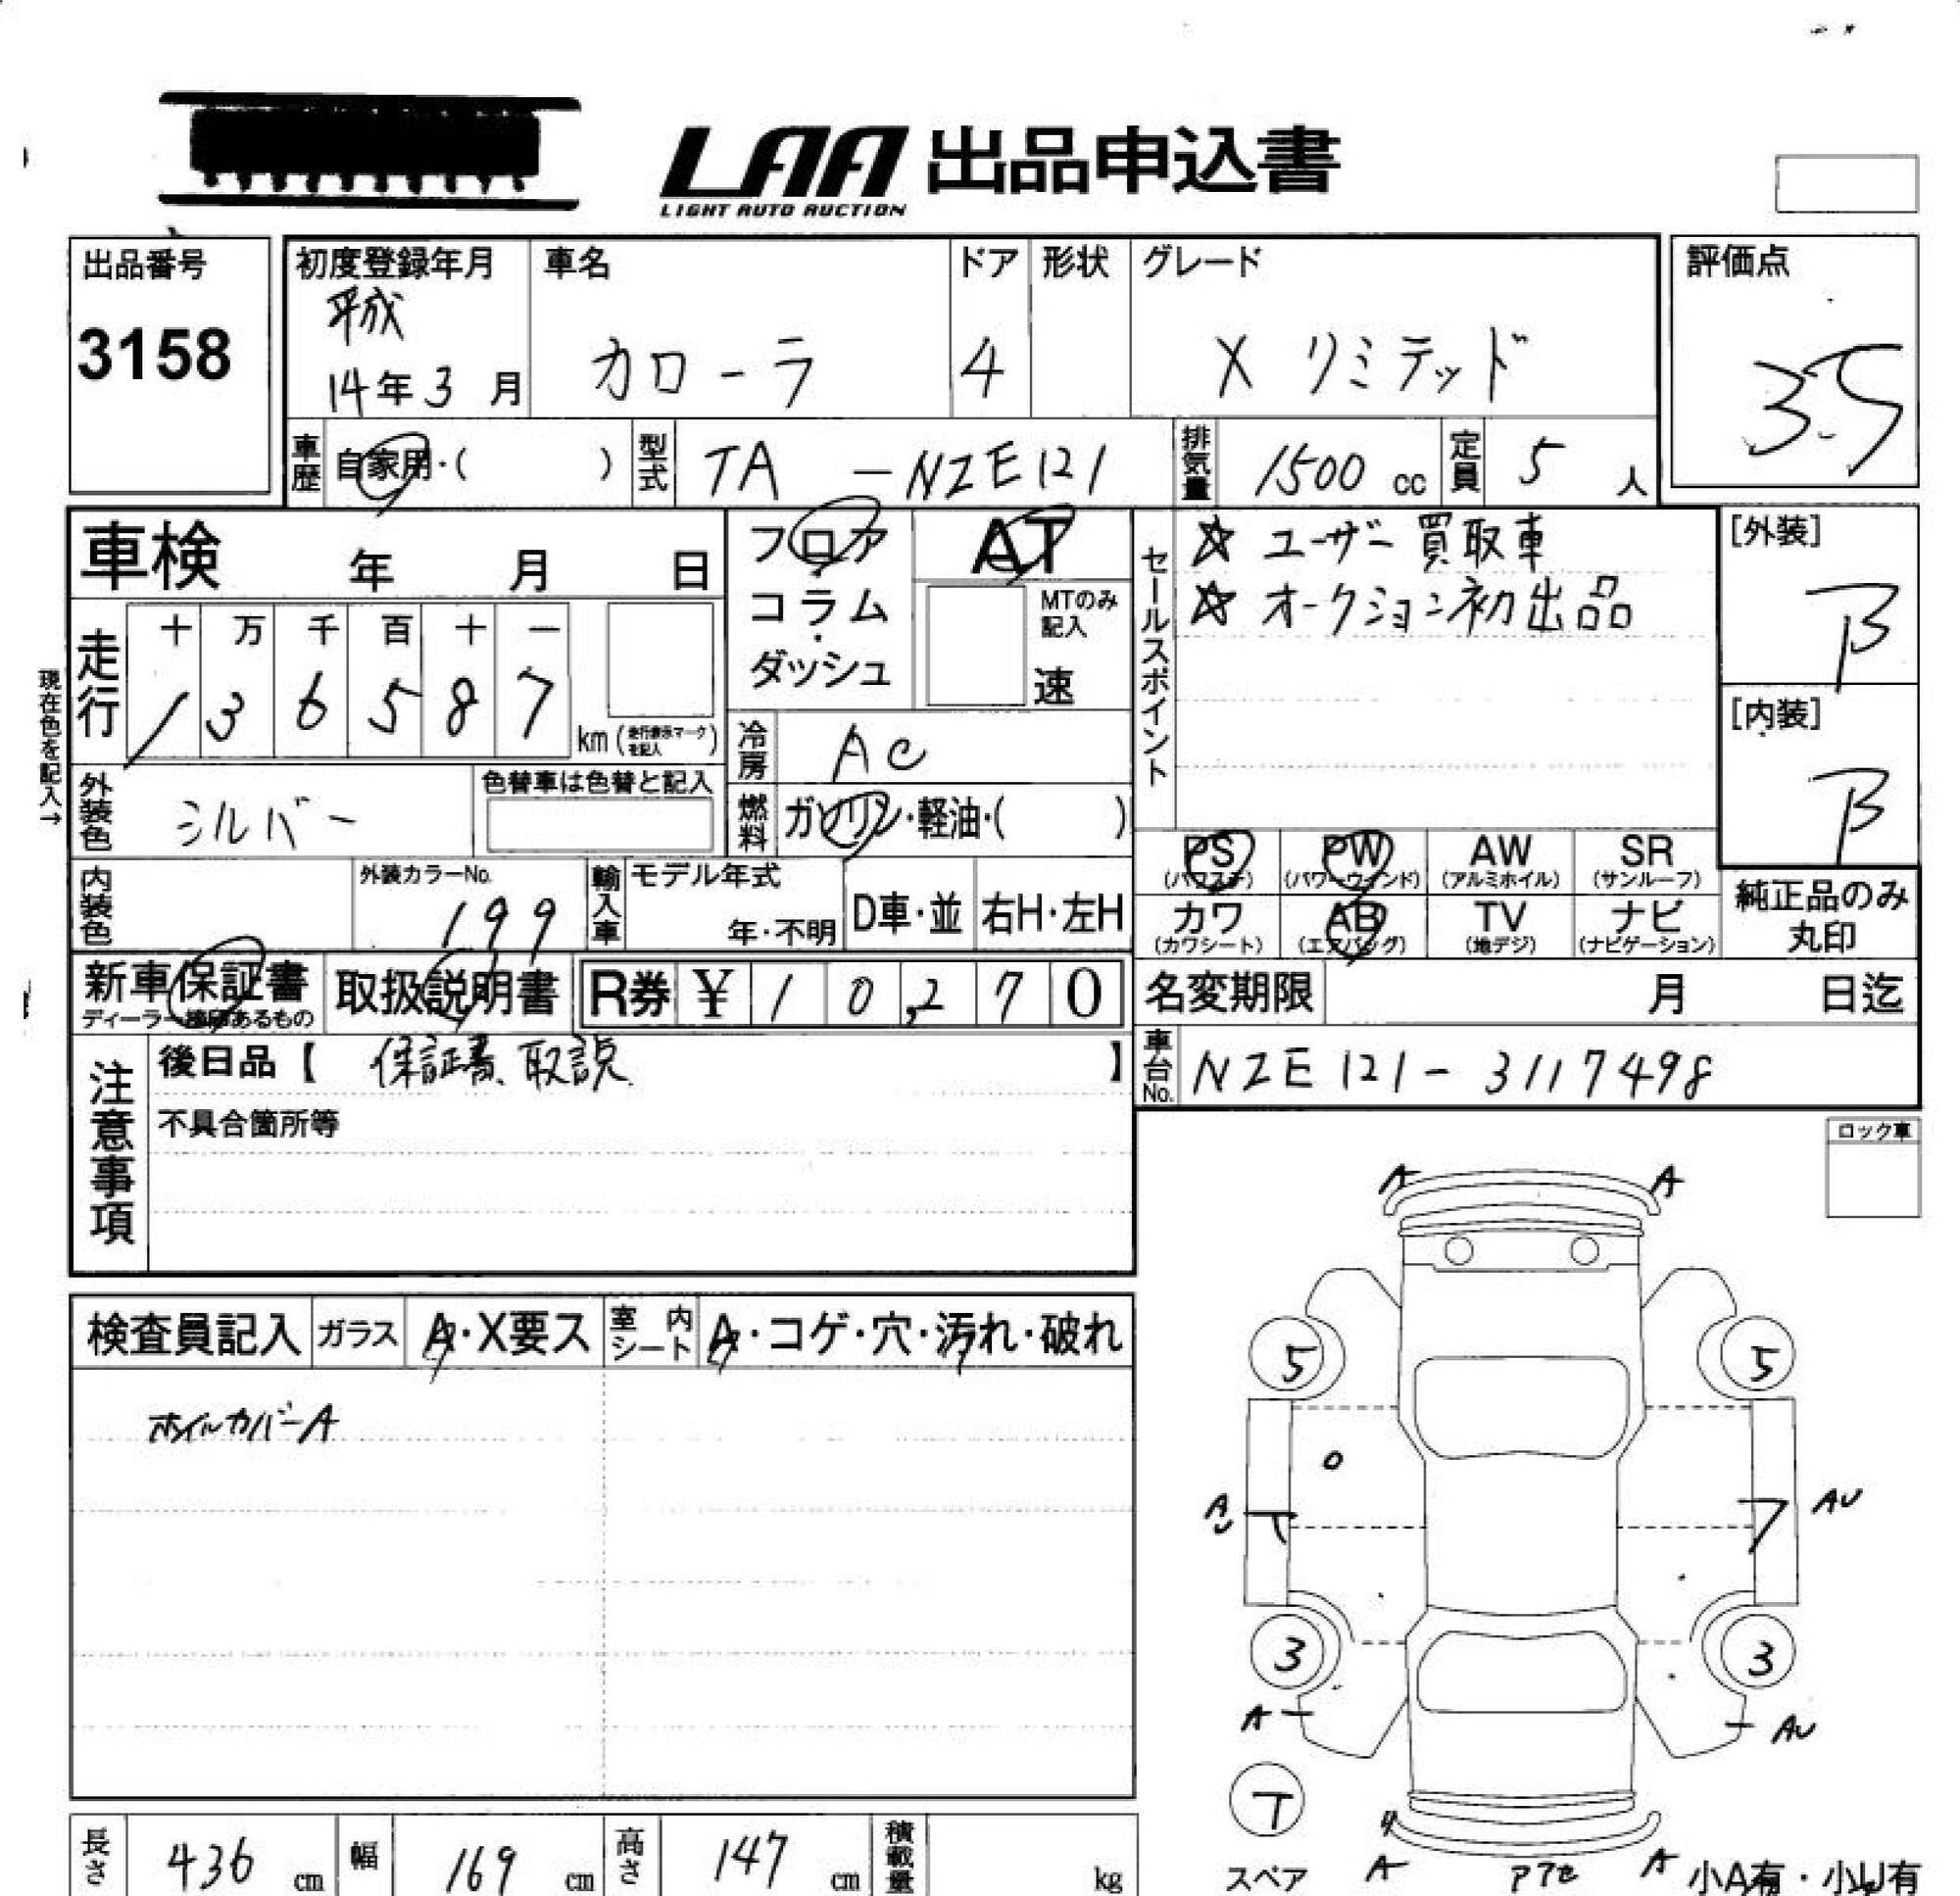 LAA 出品申込書
LIGHT AUTO AUCTION
出品番号
3158
初度登録年月
平成
14年3月
車名
カローラ
ドア
4
形状
グレード
X リミテッド
評価点
3.5
車歴
自家用・( )
型式
TA -NZE121
排気量
1500 cc
定員
5 人
車検 年 月 日
フロア
コラム
・
ダッシュ
AT
MTのみ
記入
速
セールスポイント
☆ ユーザー買取車
☆ オークション初出品
[外装]
B
[内装]
B
現在色を記入→
走行
十 万 千 百 十 一
1 3 6 5 8 7
km(走行表示マークを記入)
冷房
AC
外装色
シルバー
色替車は色替と記入
燃料
ガソリン・軽油・( )
PS
(パワステ)
PW
(パワーウインド)
AW
(アルミホイル)
SR
(サンルーフ)
カワ
(カワシート)
AB
(エアバッグ)
TV
(地デジ)
ナビ
(ナビゲーション)
純正品のみ
丸印
内装色
外装カラーNo.
199
輸入車
モデル年式
年・不明
D車・並
右H・左H
新車保証書
取扱説明書
R券 ¥ 1 0,2 7 0
名変期限 月 日迄
車台No.
NZE121-3117498
注意事項
後日品【 保証書、取説 】
不具合箇所等
ロック車
検査員記入
ガラス
A・X要ス
室内シート
A・コゲ・穴・汚れ・破れ
ホイルカバーA
A A
5 5
A AU
3 3
A AU
T
スペア
A A
小A有・小U有
長さ 436 cm
幅 169 cm
高さ 147 cm
積載量 kg